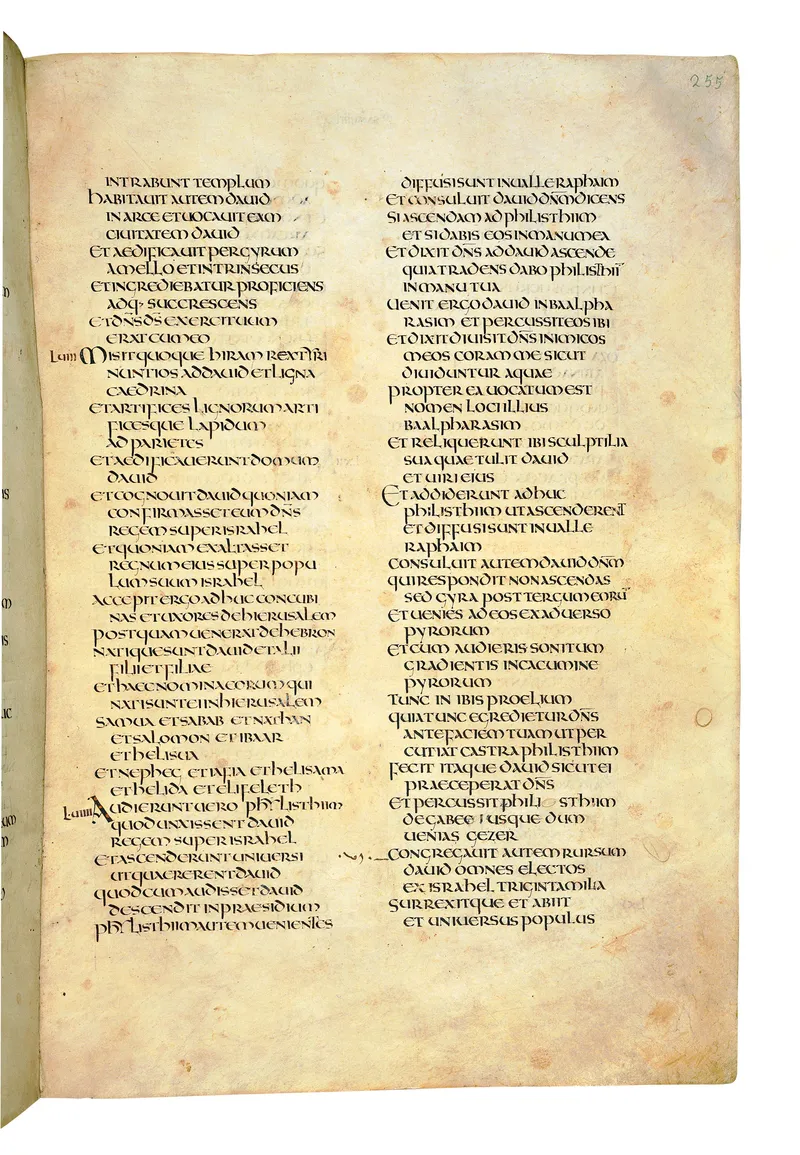 255
INTRABUNT TEMPLUM
HABITAUIT AUTEM DAUID
IN ARCE ET UOCAUIT EAM
CIUITATEM DAUID
ET AEDIFICAUIT PER GYRUM
A MELLO ET INTRINSECUS
ET INGREDIEBATUR PROFICIENS
ADQ· SUCCRESCENS
ET DN̄S D̄S EXERCITUUM
ERAT CUM EO
MISIT QUOQUE HIRAM REX TYRI
NUNTIOS AD DAUID ET LIGNA
CAEDRINA
ET ARTIFICES LIGNORUM ARTI
FICESQUE LAPIDUM
AD PARIETES
ET AEDIFICAUERUNT DOMUM
DAUID
ET COGNOUIT DAUID QUONIAM
CONFIRMASSET EUM DN̄S
REGEM SUPER ISRAHEL
ET QUONIAM EXALTASSET
REGNUM EIUS SUPER POPU
LUM SUUM ISRAHEL
ACCEPIT ERGO ADHUC CONCUBI
NAS ET UXORES DE HIERUSALEM
POSTQUAM UENERAT DE HEBRON
NATIQUE SUNT DAUID ET ALII
FILII ET FILIAE
ET HAEC NOMINA EORUM QUI
NATI SUNT EI IN HIERUSALEM
SAMUA ET SABAB ET NATHAN
ET SALOMON ET IBAAR
ET HELISUA
ET NEPHEG ET IAFIA ET HELISAMA
ET HELIDA ET ELIFELETH
AUDIERUNT UERO PHILISTHIIM
QUOD UNXISSENT DAUID
REGEM SUPER ISRAHEL
ET ASCENDERUNT UNIUERSI
UT QUAERERENT DAUID
QUOD CUM AUDISSET DAUID
DESCENDIT IN PRAESIDIUM
PHILISTHIIM AUTEM UENIENTES
DIFFUSI SUNT IN UALLE RAPHAIM
ET CONSULUIT DAUID DN̄M DICENS
SI ASCENDAM AD PHILISTHIIM
ET SI DABIS EOS IN MANU MEA
ET DIXIT DN̄S AD DAUID ASCENDE
QUIA TRADENS DABO PHILISTHIĪ
IN MANU TUA
UENIT ERGO DAUID IN BAALPHA
RASIM ET PERCUSSIT EOS IBI
ET DIXIT DIUISIT DN̄S INIMICOS
MEOS CORAM ME SICUT
DIUIDUNTUR AQUAE
PROPTEREA UOCATUM EST
NOMEN LOCI ILLIUS
BAALPHARASIM
ET RELIQUERUNT IBI SCULPTILIA
SUA QUAE TULIT DAUID
ET UIRI EIUS
ET ADDIDERUNT ADHUC
PHILISTHIIM UT ASCENDERENT
ET DIFFUSI SUNT IN UALLE
RAPHAIM
CONSULUIT AUTEM DAUID DN̄M
QUI RESPONDIT NON ASCENDAS
SED GYRA POST TERGUM EORŪ
ET UENIES AD EOS EX ADUERSO
PYRORUM
ET CUM AUDIERIS SONITUM
GRADIENTIS IN CACUMINE
PYRORUM
TUNC INIBIS PROELIUM
QUIA TUNC EGREDIETUR DN̄S
ANTE FACIEM TUAM UT PER
CUTIAT CASTRA PHILISTHIIM
FECIT ITAQUE DAUID SICUT EI
PRAECEPERAT DN̄S
ET PERCUSSIT PHILISTHIIM
DE GABEE USQUE DUM
UENIAS GEZER
CONGREGAUIT AUTEM RURSUM
DAUID OMNES ELECTOS
EX ISRAHEL TRIGINTA MILIA
SURREXITQUE ET ABIIT
ET UNIUERSUS POPULUS